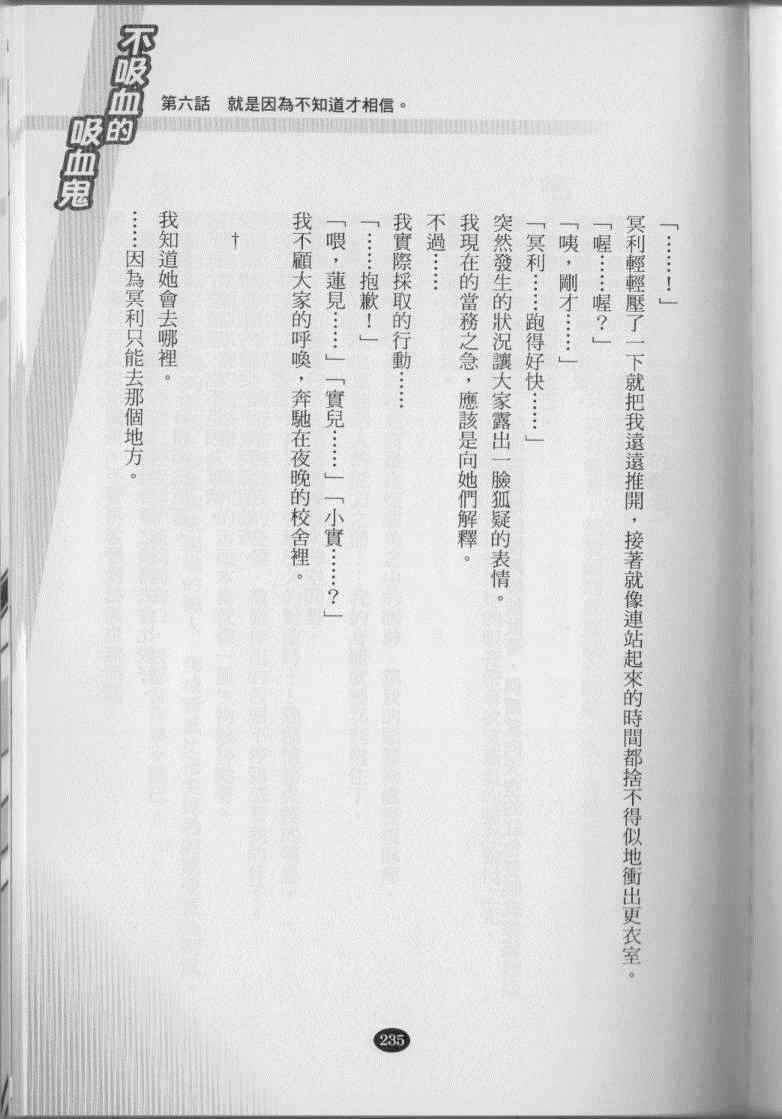 不吸血的
吸血鬼
第六話　就是因為不知道才相信。
「……！」
冥利輕輕壓了一下就把我遠遠推開，接著就像連站起來的時間都捨不得似地衝出更衣室。
「喔……喔？」
「咦，剛才……」
「冥利……跑得好快……」
突然發生的狀況讓大家露出一臉狐疑的表情。
我現在的當務之急，應該是向她們解釋。
不過……
我實際採取的行動……
「……抱歉！」
「喂，蓮見……」「實兒……」「小實……？」
我不顧大家的呼喚，奔馳在夜晚的校舍裡。
†
我知道她會去哪裡。
……因為冥利只能去那個地方。
235